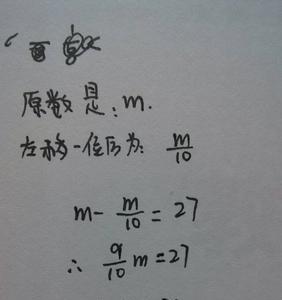 原数是：m.
左移一位后为：m/10
m - m/10 = 27
∴ 9/10 m = 27